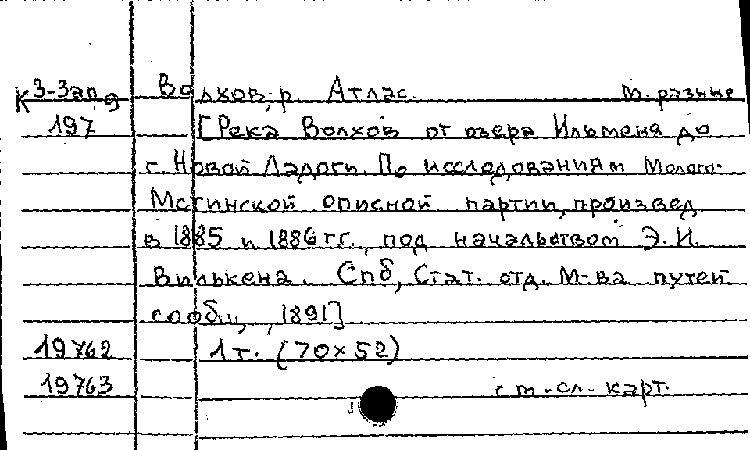 К 3-Зап 9 Волхов, р. Атлас. м. разные
197 [Река Волхов от озера Ильменя до
г. Новой Ладоги. По исследованиям Молого-
Мстинской описной партии, произвед.
в 1885 и 1886 гг., под начальством Э. И.
Вилькена. Спб, Стат. отд. М-ва путей
сообщ., 1891]
19762 1 т. (70×52)
19763 см.-сл. карт.